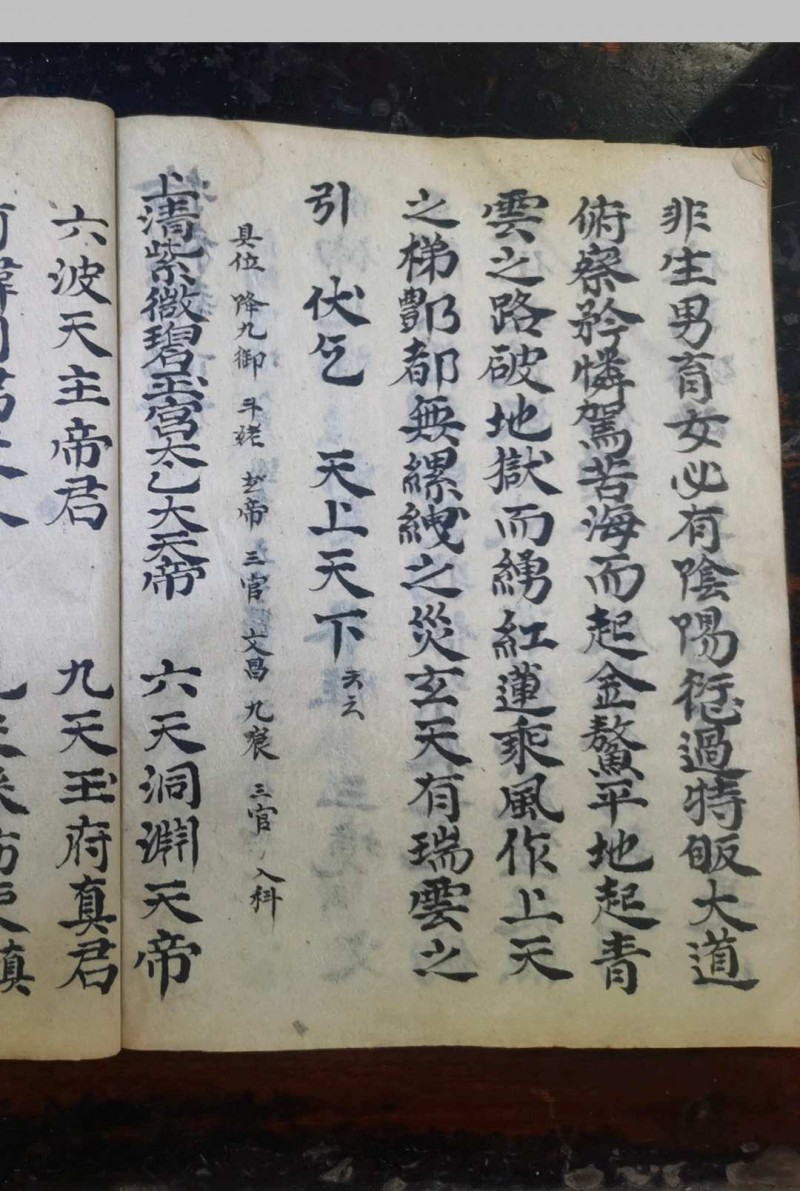 非生男育女必有陰陽愆過特皈大道
俯察矜憐駕苦海而起金鰲平地起青
雲之路破地獄而綉紅蓮乘風作上天
之梯酆都無縲絏之災玄天有瑞雲之
引 伏乞 天上天下 云云
具位 降九御 斗姥 玉帝 三官 文昌 九宸 三官 入科
上清紫微碧玉宮太乙大天帝 六天洞淵天帝
六波天主帝君 九天玉府真君